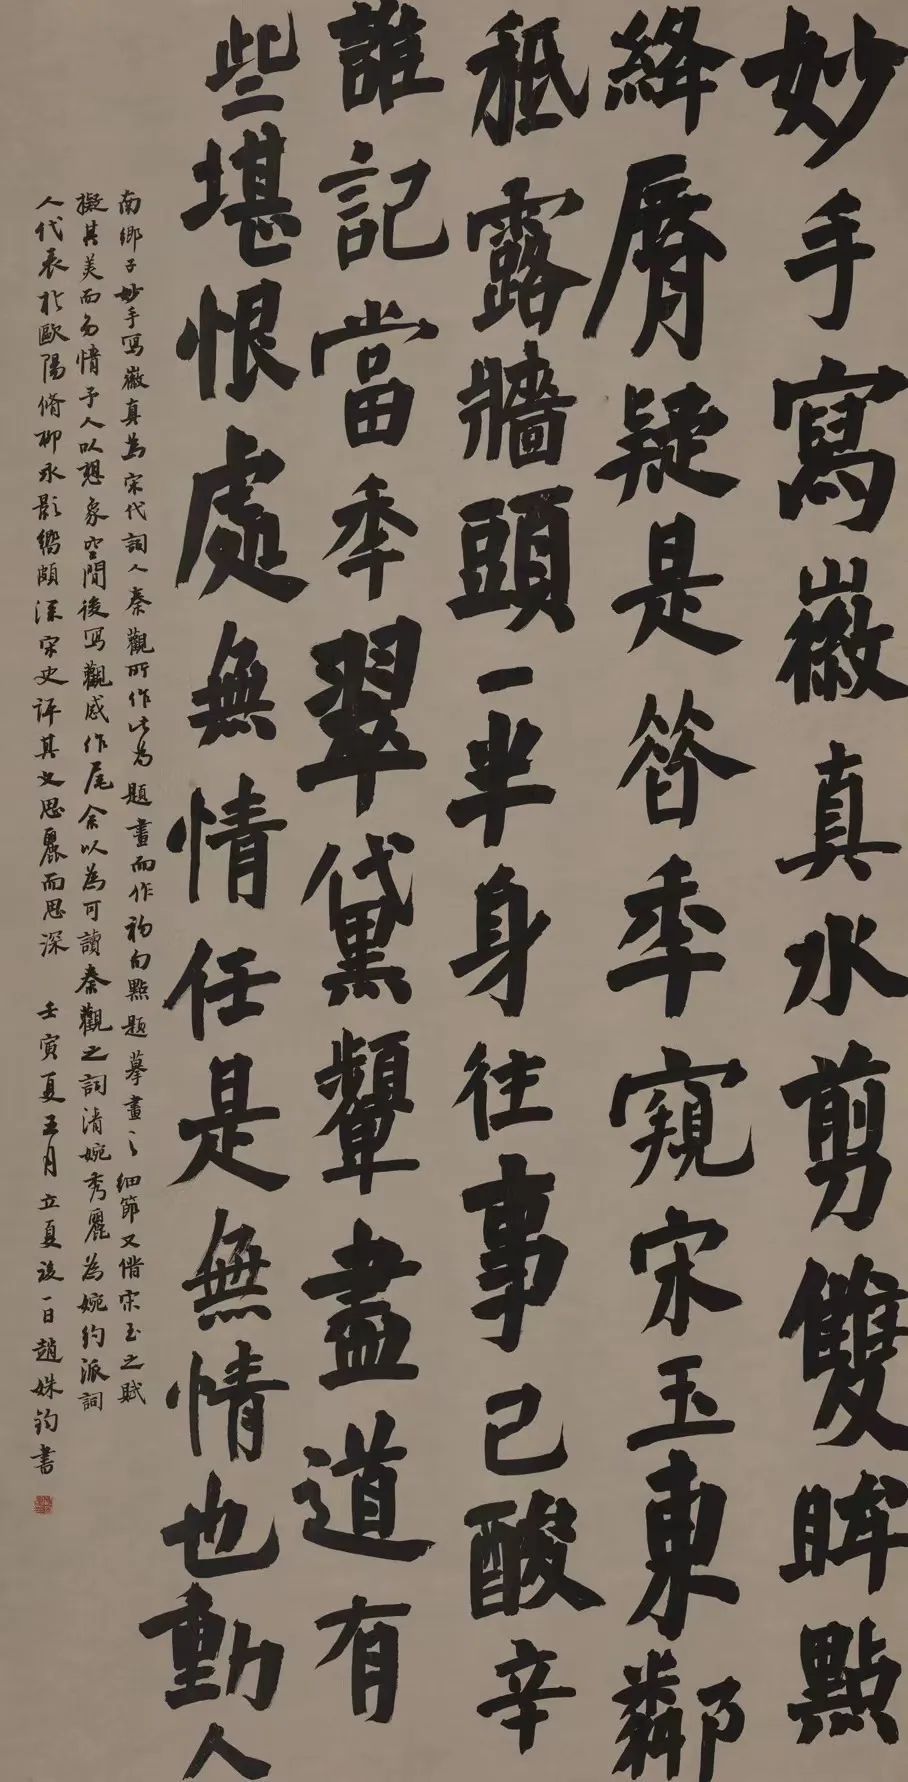 妙手寫徽真水剪雙眸點
絳脣疑是昝季窺宋玉東鄰
秪露牆頭一半身往事已酸辛
誰記當季翠黛顰盡道有
些堪恨處無情任是無情也動人
南鄉子妙手寫徽真為宋代詞人秦觀所作此為題畫而作初句點題摹畫之細節又借宋玉之賦
擬其美而多情予人以想象空間後寫觀感作尾余以為可讀秦觀之詞清婉秀麗為婉約派詞
人代表於歐陽脩柳永影響頗深宋史評其文思麗而思深 壬寅夏五月立夏後一日趙姝鈞書